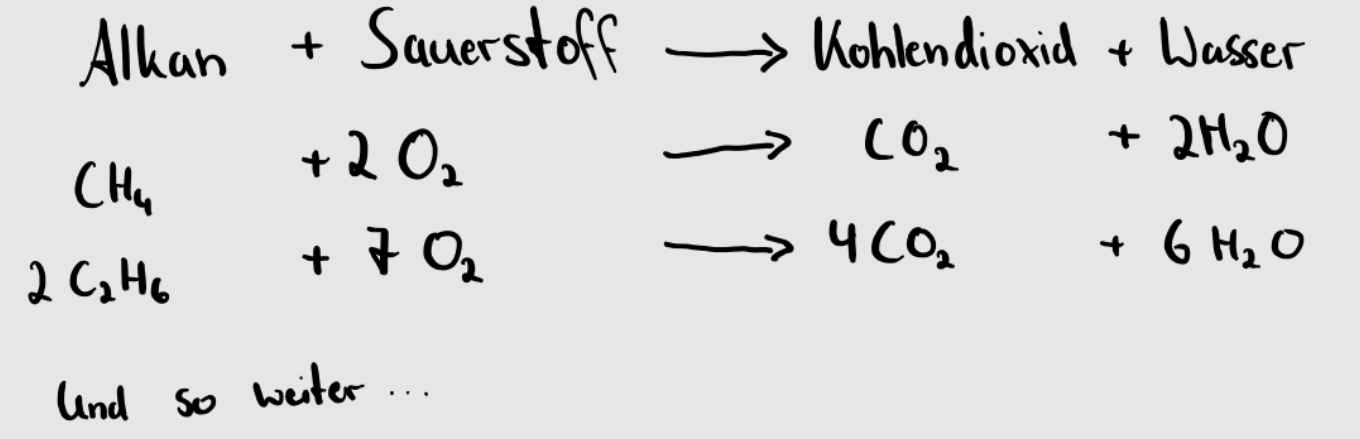 Alkan + Sauerstoff ⟶ Kohlendioxid + Wasser
CH₄ + 2 O₂ ⟶ CO₂ + 2H₂O
2 C₂H₆ + 7 O₂ ⟶ 4CO₂ + 6 H₂O
Und so weiter ...